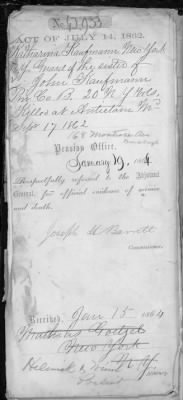 No 42,933
ACT OF JULY 14, 1862.
Katharina Kaufmann New York
N.Y. Guard of the sister of
John Kaufmann
Pri Co B. 20 N.Y. Vols.
Killed at Antietam Md
Sept 17 1862
68 Montrose Ave
Pension Office,
January 19, 1864.
Respectfully referred to the Adjutant
General, for official evidence of service
and death.
Joseph H Barrett
Commissioner.
Received, Jan 15 1864
New York